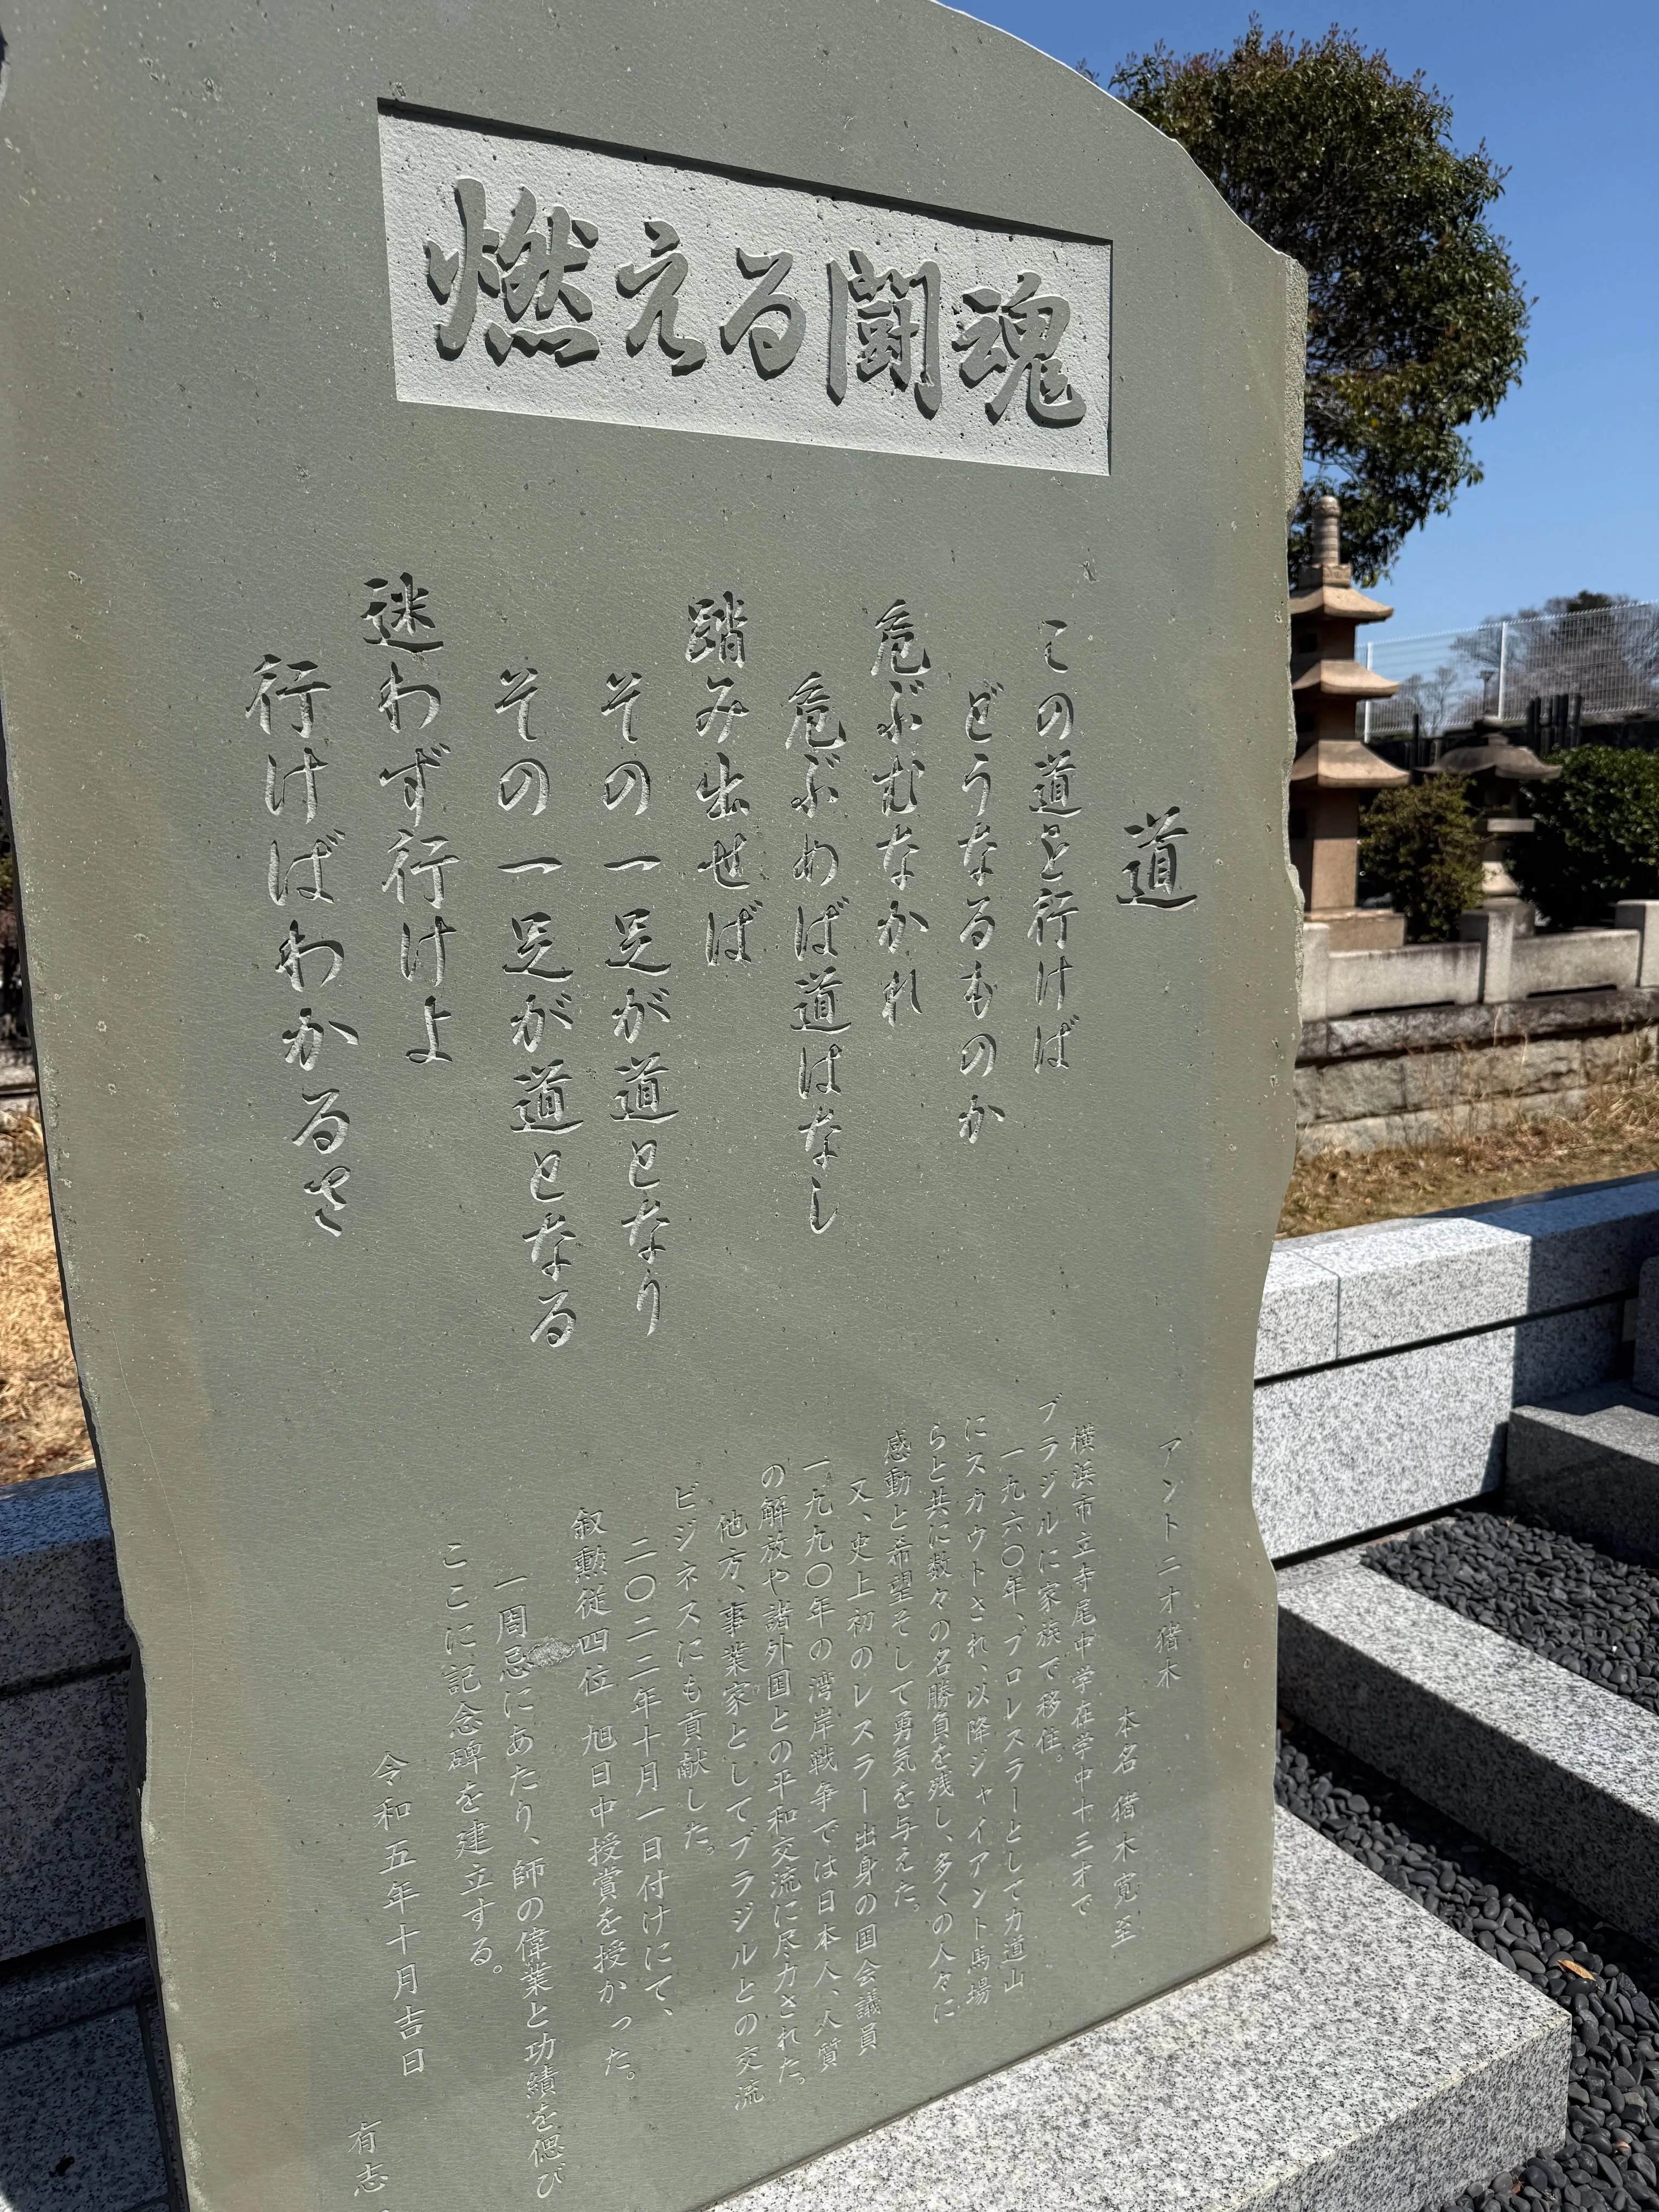 燃える闘魂
道
この道を行けば
どうなるものか
危ぶむなかれ
危ぶめば道はなし
踏み出せば
その一足が道となり
その一足が道となる
迷わず行けよ
行けばわかるさ
アントニオ猪木
本名 猪木寛至
横浜市立寺尾中学在学中十三才で
ブラジルに家族で移住。
一九六〇年、プロレスラーとして力道山
にスカウトされ、以降ジャイアント馬場
らと共に数々の名勝負を残し、多くの人々に
感動と希望そして勇気を与えた。
又、史上初のレスラー出身の国会議員
一九九〇年の湾岸戦争では日本人、人質
の解放や諸外国との平和交流に尽力された。
他方、事業家としてブラジルとの交流
ビジネスにも貢献した。
二〇二二年十月一日付けにて、
叙勲従四位 旭日中授賞を授かった。
一周忌にあたり、師の偉業と功績を偲び
ここに記念碑を建立する。
令和五年十月吉日
有志